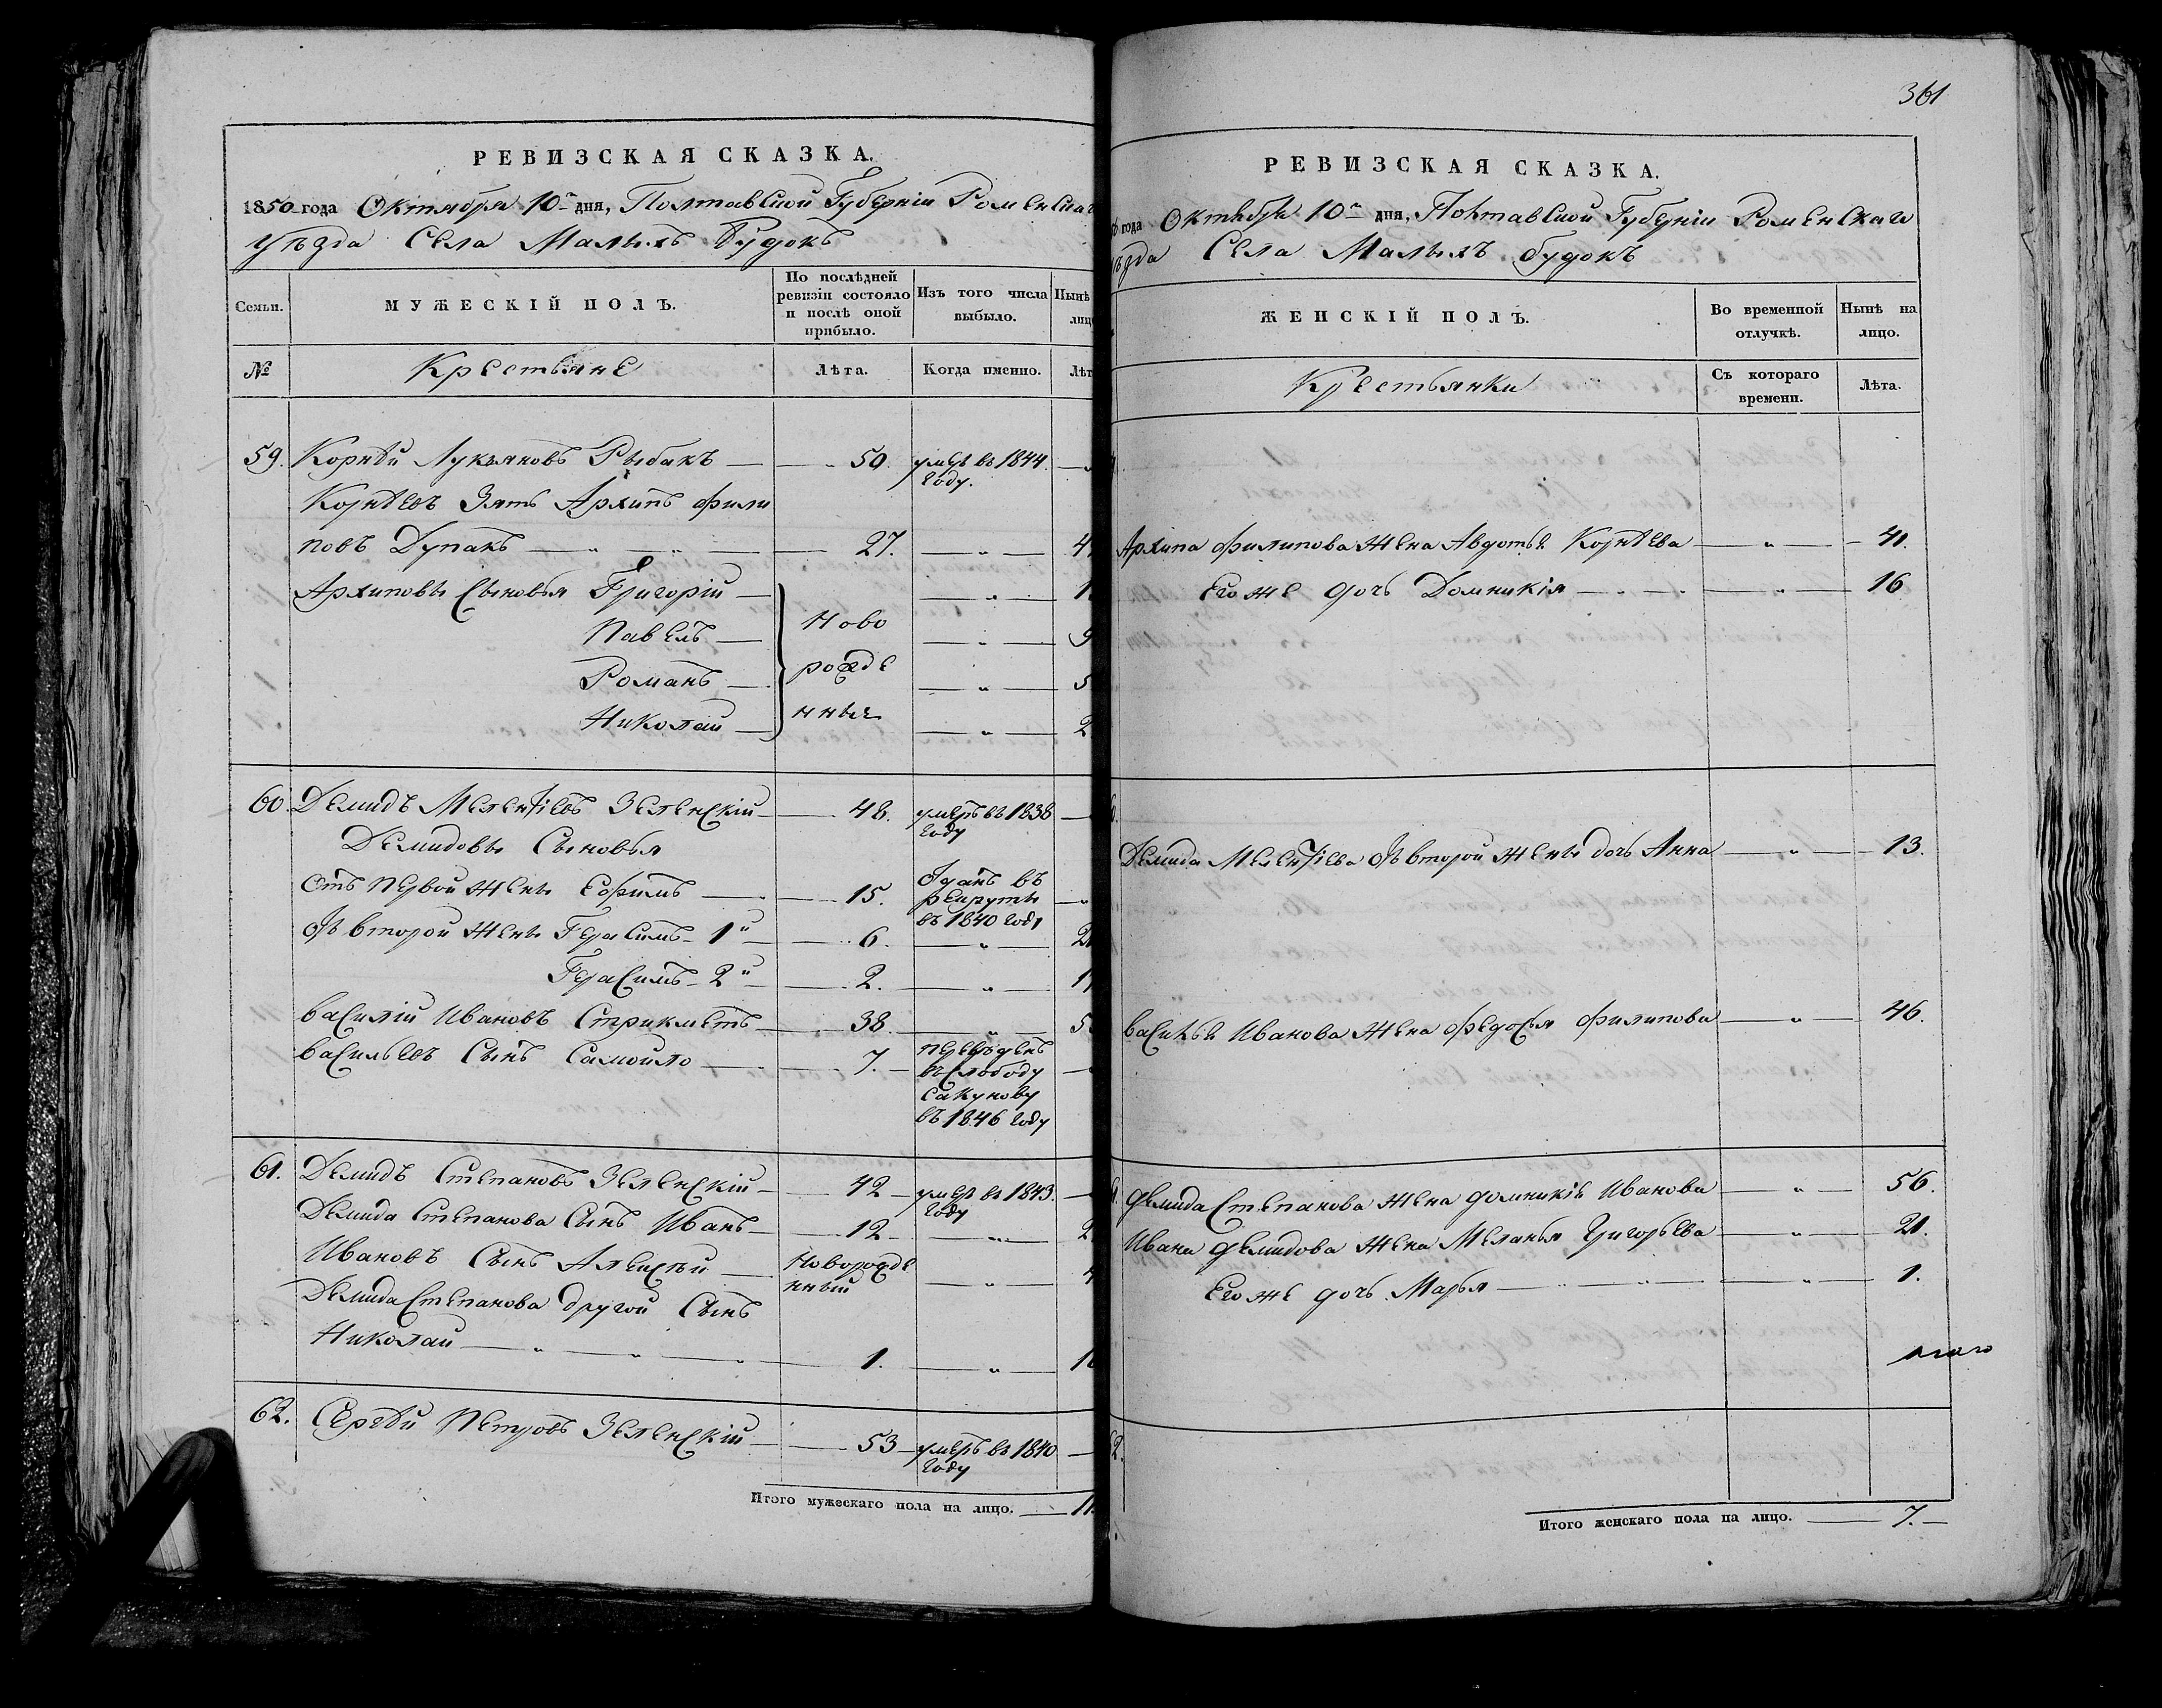 РЕВИЗСКАЯ СКАЗКА.
1850 года Октября 10 дня, Полтавской Губерніи Роменскаг
уѣзда Села Малыхъ Будокъ
Семьи.
МУЖЕСКІЙ ПОЛЪ.
По послѣдней ревизіи состояло и послѣ оной прибыло.
Изъ того числа выбыло.
Нынѣ
лиц
№
Крестьяне
Лѣта.
Когда именно.
Лѣт
59. Корнѣй Лукьяновъ Рыбакъ — 50. умеръ въ 1844 году.
Корнѣевъ Зять Архипъ Фили
повъ Дупакъ — 27. — " — 4
Архиповы Сыновья Григорій — Ново — " — 1
Павелъ — — " — 9
Романъ — рожде — " — 5
Николай — нные — " — 2
60. Демидъ Мелентіевъ Зеленскій — 48. умеръ въ 1838 году
Демидовы Сыновья
Отъ первой жены Ефимъ — 15. Отданъ въ рекруты въ 1840 году
Отъ второй жены Герасимъ 1й — 6. — " — 2
Герасимъ 2й — 2. — " — 1
Василій Ивановъ Стрикметъ — 38. — " — 5
Васильевъ Сынъ Самойло — 7. — переведенъ въ Слободу Сакунову въ 1846 году
61. Демидъ Степановъ Зеленскій — 42 — умеръ въ 1843. году
Демида Степанова Сынъ Иванъ — 12 — " — 2
Ивановъ Сынъ Алексѣй — Новорожде нный — " — 4
Демида Степанова другой Сынъ
Николай — " — " — 1. — " — 1
62. Сергѣй Петровъ Зеленскій — 53 — умеръ въ 1840 году
Итого мужескаго пола на лицо. — 11
361
РЕВИЗСКАЯ СКАЗКА.
года Октября 10 дня, Полтавской Губерніи Роменскаго
ѣзда Села Малыхъ будокъ
ЖЕНСКІЙ ПОЛЪ.
Во временной отлучкѣ.
Нынѣ на лицо.
Крестьянки
Съ котораго времени.
Лѣта.
Архипа Филипова жена Авдотья Корнѣева — " — 41.
Его же дочь Домникія — " — 16
Демида Мелентіева отъ второй жены дочь Анна — " — 13.
Василья Иванова жена Федосья Филипова — " — 46.
Демида Степанова жена домникія Иванова — " — 56.
Ивана Демидова жена Меланья Григорьева — " — 21.
Его же дочь Марья — " — 1.
62.
Итого женскаго пола на лицо. — 7. —